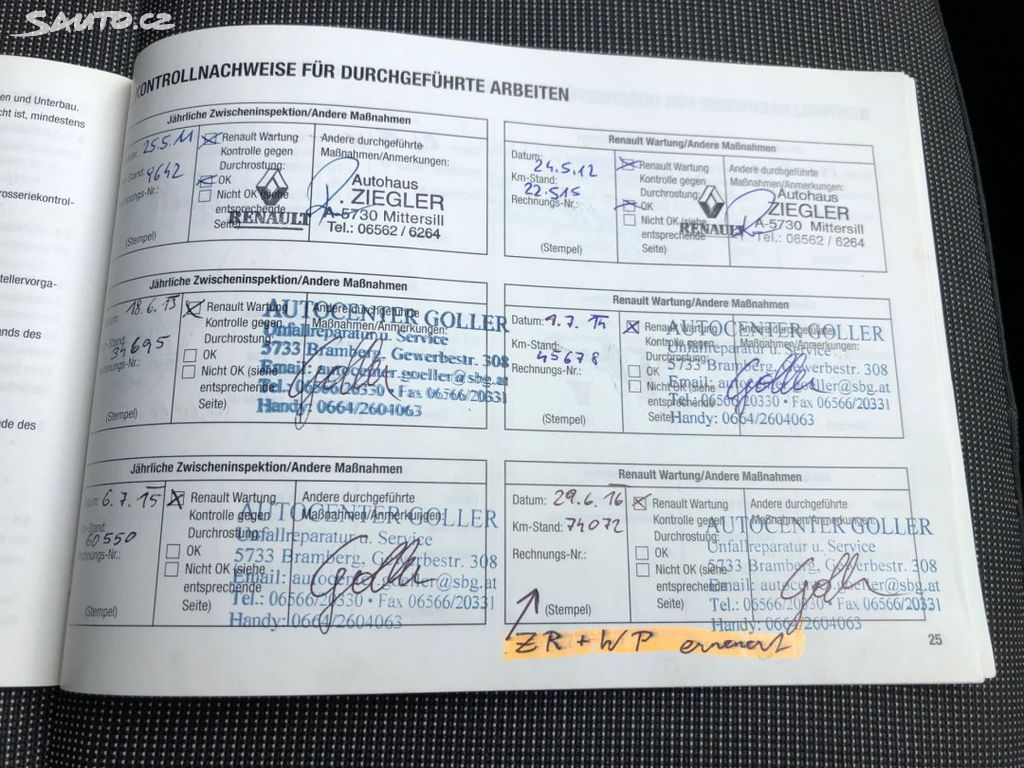 SAUTO.CZ
en und Unterbau.
cht ist, mindestens
rosseriekontrol-
tellervorga-
ands des
de des
KONTROLLNACHWEISE FÜR DURCHGEFÜHRTE ARBEITEN
Jährliche Zwischeninspektion/Andere Maßnahmen
25.5.11
-Stand: 9642
-Nr.:
(Stempel)
Renault Wartung
Kontrolle gegen
Durchrostung:
OK
Nicht OK (siehe
entsprechende
Seite)
Andere durchgeführte
Maßnahmen/Anmerkungen:
RENAULT
Autohaus
R. ZIEGLER
A-5730 Mittersill
Tel.: 06562 / 6264
Renault Wartung/Andere Maßnahmen
Datum: 24.5.12
Km-Stand: 22.515
Rechnungs-Nr.:
(Stempel)
Renault Wartung
Kontrolle gegen
Durchrostung:
OK
Nicht OK (siehe
entsprechende
Seite)
Andere durchgeführte
Maßnahmen/Anmerkungen:
RENAULT
Autohaus
ZIEGLER
A-5730 Mittersill
Tel.: 06562 / 6264
Jährliche Zwischeninspektion/Andere Maßnahmen
18.6.13
34695
-Nr.:
(Stempel)
Renault Wartung
Kontrolle gegen
Durchrostung:
OK
Nicht OK (siehe
entsprechende
Seite)
Andere durchgeführte
Maßnahmen/Anmerkungen:
AUTOCENTER GOLLER
Unfallreparatur u. Service
5733 Bramberg, Gewerbestr. 308
Email: autocenter.goeller@sbg.at
Tel.: 06566/20330 • Fax 06566/20331
Handy: 0664/2604063
Renault Wartung/Andere Maßnahmen
Datum: 9.7.14
Km-Stand: 45678
Rechnungs-Nr.:
(Stempel)
Renault Wartung
Kontrolle gegen
Durchrostung:
OK
Nicht OK (siehe
entsprechende
Seite)
Andere durchgeführte
Maßnahmen/Anmerkungen:
AUTOCENTER GOLLER
Unfallreparatur u. Service
5733 Bramberg, Gewerbestr. 308
Email: autocenter.goeller@sbg.at
Tel.: 06566/20330 • Fax 06566/20331
Handy: 0664/2604063
Jährliche Zwischeninspektion/Andere Maßnahmen
6.7.15
-Stand: 60550
-Nr.:
(Stempel)
Renault Wartung
Kontrolle gegen
Durchrostung:
OK
Nicht OK (siehe
entsprechende
Seite)
Andere durchgeführte
Maßnahmen/Anmerkungen:
AUTOCENTER GOLLER
Unfallreparatur u. Service
5733 Bramberg, Gewerbestr. 308
Email: autocenter.goeller@sbg.at
Tel.: 06566/20330 • Fax 06566/20331
Handy: 0664/2604063
Renault Wartung/Andere Maßnahmen
Datum: 29.6.16
Km-Stand: 74072
Rechnungs-Nr.:
(Stempel)
Renault Wartung
Kontrolle gegen
Durchrostung:
OK
Nicht OK (siehe
entsprechende
Seite)
Andere durchgeführte
Maßnahmen/Anmerkungen:
AUTOCENTER GOLLER
Unfallreparatur u. Service
5733 Bramberg, Gewerbestr. 308
Email: autocenter.goeller@sbg.at
Tel.: 06566/20330 • Fax 06566/20331
Handy: 0664/2604063
ZR + WP erneuert
25